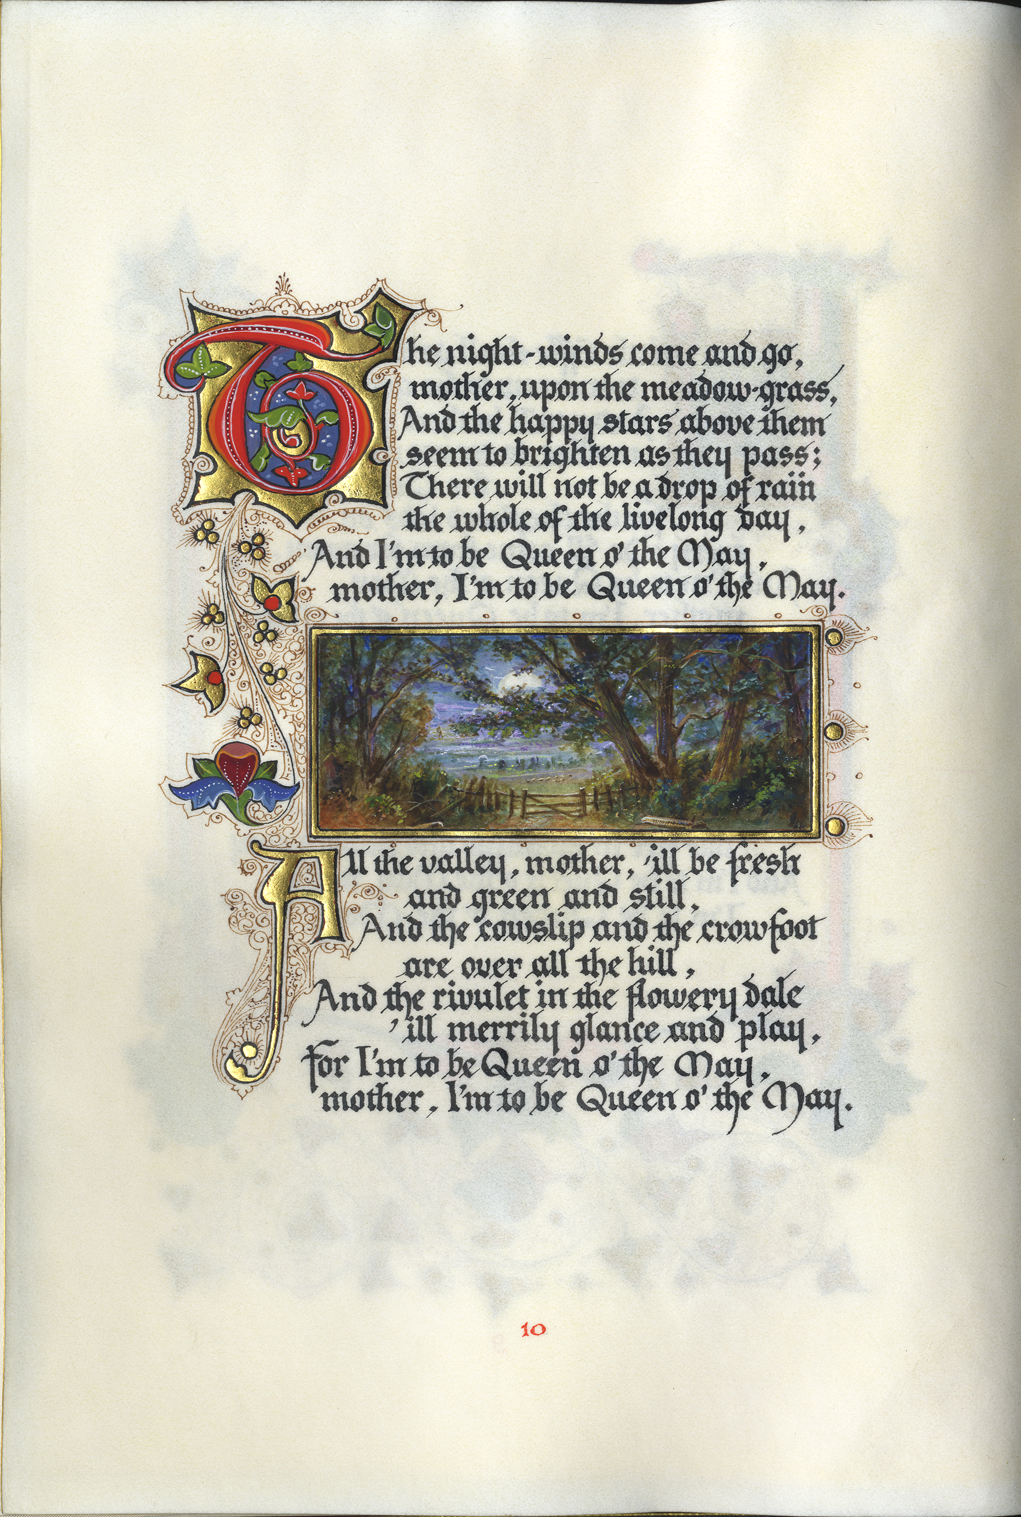 The night-winds come and go,
mother, upon the meadow-grass,
And the happy stars above them
seem to brighten as they pass;
There will not be a drop of rain
the whole of the livelong day,
And I'm to be Queen o' the May,
mother, I'm to be Queen o' the May.
All the valley, mother, 'ill be fresh
and green and still,
And the cowslip and the crowfoot
are over all the hill,
And the rivulet in the flowery dale
'ill merrily glance and play,
for I'm to be Queen o' the May,
mother, I'm to be Queen o' the May.
10